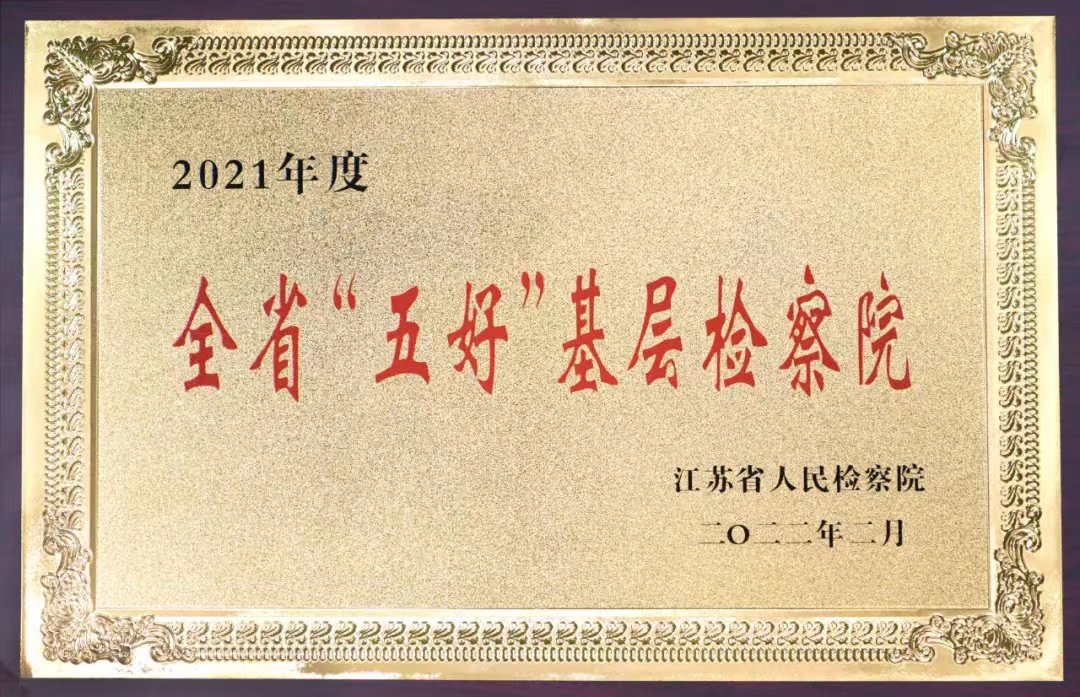 2021年度
全省“五好”基层检察院
江苏省人民检察院
二〇二二年二月